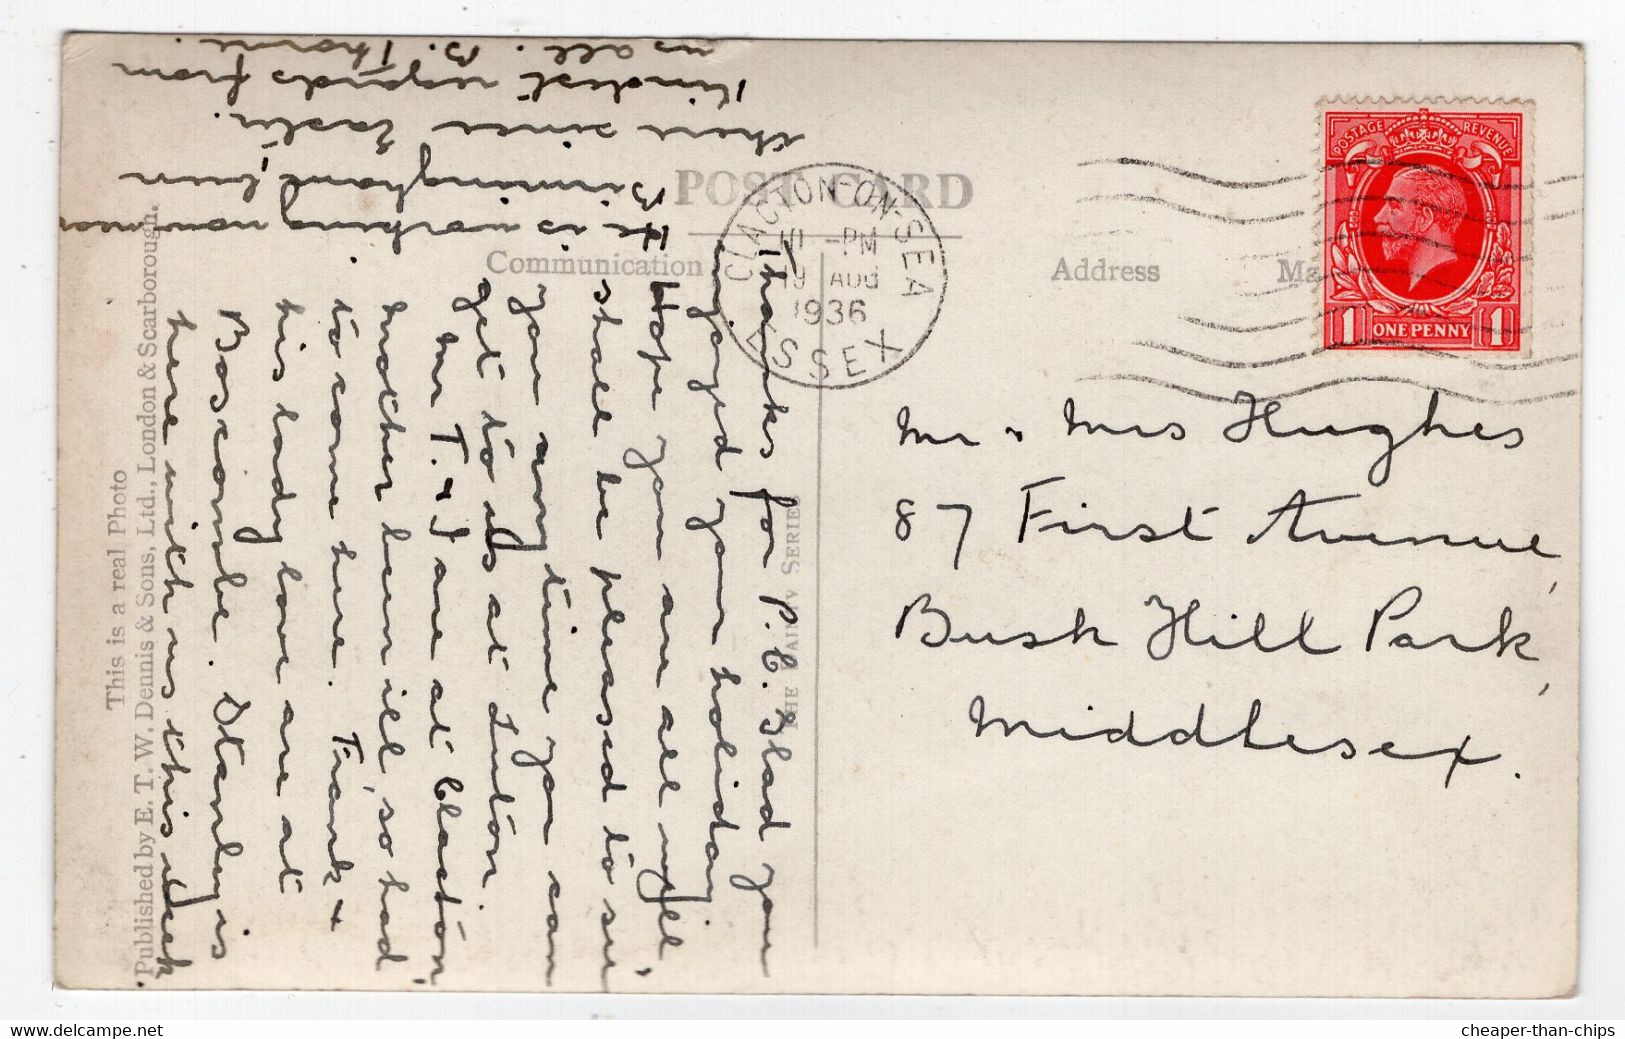 POST CARD
Communication
Address
POSTAGE REVENUE
1 ONE PENNY 1
CLACTON-ON-SEA
-PM
19 AUG
1936
ESSEX
Mr & Mrs Hughes
87 First Avenue,
Bush Hill Park,
Middlesex.
Thanks for P.C. Glad you
enjoyed your holiday
Hope you are all well,
shall be pleased to see
you any time you can
get to us at Luton.
Mr T. & I are at Clacton,
Mother been ill, so had
to come here. Frank &
his lady love are at
Boscombe. Stanley is
here with us this week
He is working now near
Birmingham, been
there since Easter.
Kindest regards from
us all. B. Thorne.
This is a real Photo
Published by E. T. W. Dennis & Sons, Ltd., London & Scarborough.
SERIES
www.delcampe.net
cheaper-than-chips